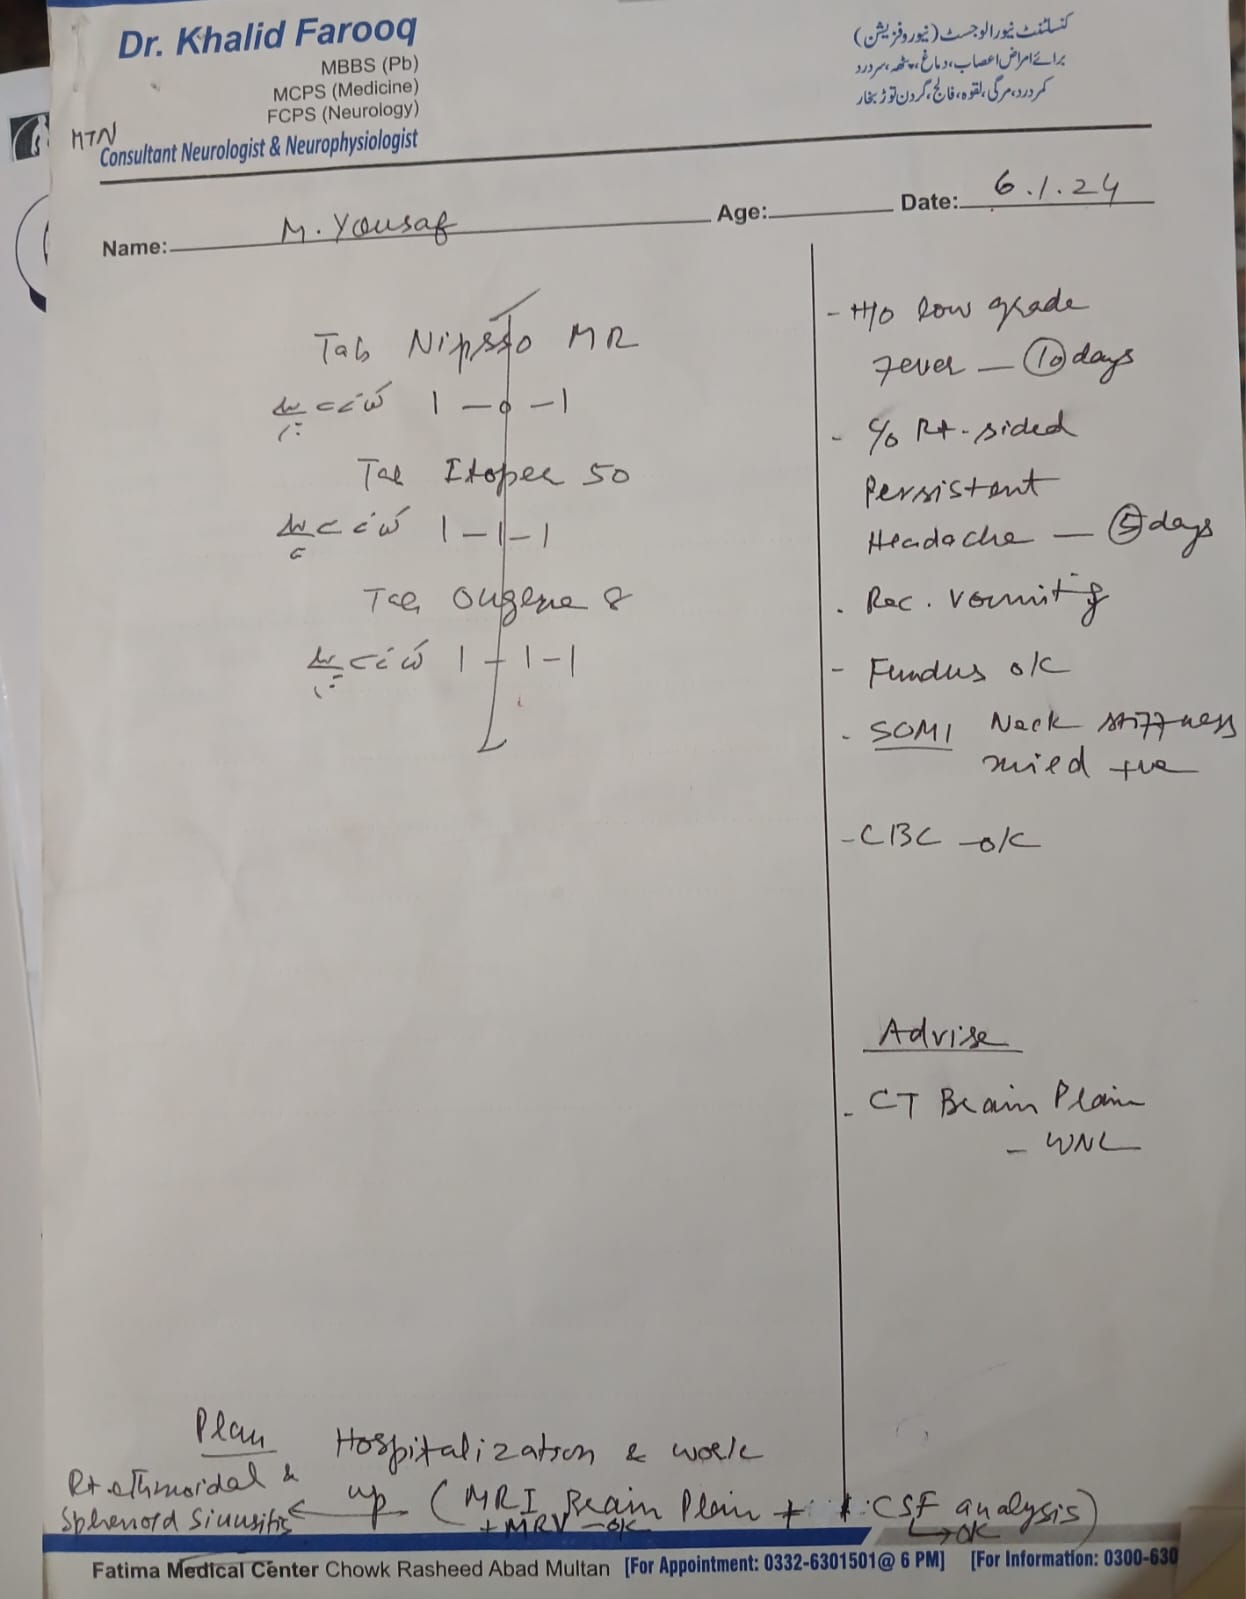 Dr. Khalid Farooq
MBBS (Pb)
MCPS (Medicine)
FCPS (Neurology)
HTN
Consultant Neurologist & Neurophysiologist
کنسلٹنٹ نیورالوجسٹ (نیوروفزیشن)
برائے امراض اعصاب، دماغ، پٹھہ، سردرد
کمردرد، مرگی، لقوہ، فالج، گردن توڑ بخار
Name: M. Yousaf Age: Date: 6.1.24
Tab MR
1 - 0 - 1
Tab 50
1 - 1 - 1
Tab 8
1 - 1 - 1
- H/o low grade
Fever — 10 days
- C/o Rt-sided
Persistent
Headache — 5 days
. Rec. vomiting
- Fundus o/k
- SOMI Neck stiffness
mild +ve
- CBC - o/k
Advise
- CT Brain Plain
- WNL
Plan Hospitalization & work
up (MRI Brain Plain + CSF analysis)
+ MRV - ok → ok
Rt ethmoidal &
Sphenoid Sinusitis ←
Fatima Medical Center Chowk Rasheed Abad Multan [For Appointment: 0332-6301501@ 6 PM] [For Information: 0300-630